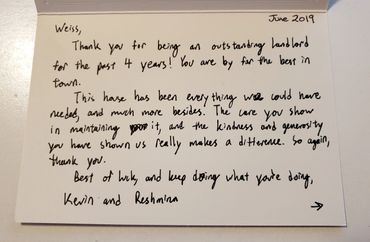 June 2019
Weiss,
Thank you for being an outstanding landlord
for the past 4 years! You are by far the best in
town.
This house has been everything we could have
needed, and much more besides. The care you show
in maintaining it, and the kindness and generosity
you have shown us really makes a difference. So again,
thank you.
Best of luck, and keep doing what you're doing,
Kevin and Reshminn
→